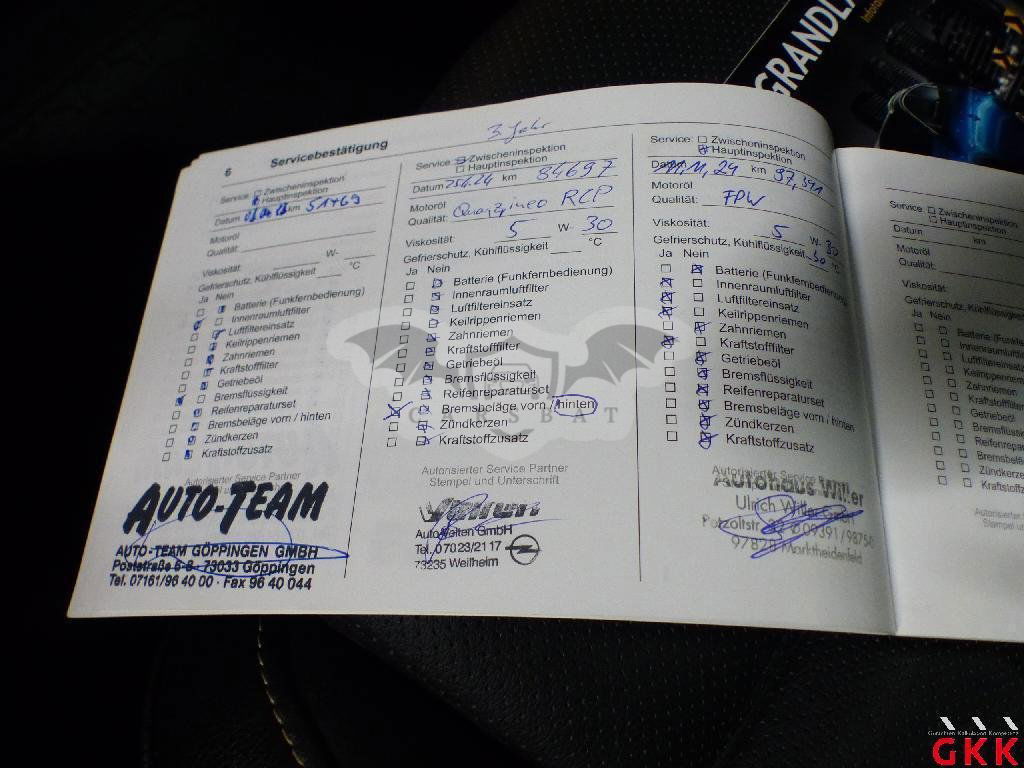 GRANDLA
6 Servicebestätigung
Service: Zwischeninspektion
Hauptinspektion
Datum km 51769
Motoröl
Qualität:
Viskosität: W-
Gefrierschutz, Kühlflüssigkeit °C
Ja Nein
Batterie (Funkfernbedienung)
Innenraumluftfilter
Luftfiltereinsatz
Keilrippenriemen
Zahnriemen
Kraftstofffilter
Getriebeöl
Bremsflüssigkeit
Reifenreparaturset
Bremsbeläge vorn / hinten
Zündkerzen
Kraftstoffzusatz
Autorisierter Service Partner
AUTO-TEAM
AUTO-TEAM GÖPPINGEN GMBH
Poststraße 6-8 - 73033 Göppingen
Tel. 07161/96 40 00 · Fax 96 40 044
3. Jahr
Service: Zwischeninspektion
Hauptinspektion
Datum 25.4.24 km 84697
Motoröl
Qualität: RCP
Viskosität: 5 W- 30
Gefrierschutz, Kühlflüssigkeit °C
Ja Nein
Batterie (Funkfernbedienung)
Innenraumluftfilter
Luftfiltereinsatz
Keilrippenriemen
Zahnriemen
Kraftstofffilter
Getriebeöl
Bremsflüssigkeit
Reifenreparaturset
Bremsbeläge vorn / hinten
Zündkerzen
Kraftstoffzusatz
Autorisierter Service Partner
Stempel und Unterschrift
GmbH
Tel. 07023/2117
73235 Weilheim
Service: Zwischeninspektion
Hauptinspektion
Datum 11.11.24 km 97,391
Motoröl
Qualität: FPW
Viskosität: 5 W- 30
Gefrierschutz, Kühlflüssigkeit 30 °C
Ja Nein
Batterie (Funkfernbedienung)
Innenraumluftfilter
Luftfiltereinsatz
Keilrippenriemen
Zahnriemen
Kraftstofffilter
Getriebeöl
Bremsflüssigkeit
Reifenreparaturset
Bremsbeläge vorn / hinten
Zündkerzen
Kraftstoffzusatz
Autorisierter Service
Autohaus Willer
Ulrich Willer GmbH
09391/98750
97828 Marktheidenfeld
Service: Zwischeninspektion
Hauptinspektion
Datum km
Motoröl
Qualität:
Viskosität:
Gefrierschutz, Kühlflüss
Ja Nein
Batterie (Funk
Innenraumluft
Luftfiltereins
Keilrippenri
Zahnriemen
Kraftstofffil
Getriebeöl
Bremsflüss
Reifenrepa
Bremsbelä
Zündkerze
Kraftstoffz
Autorisierte
Stempel un
CARSBAT
GKK